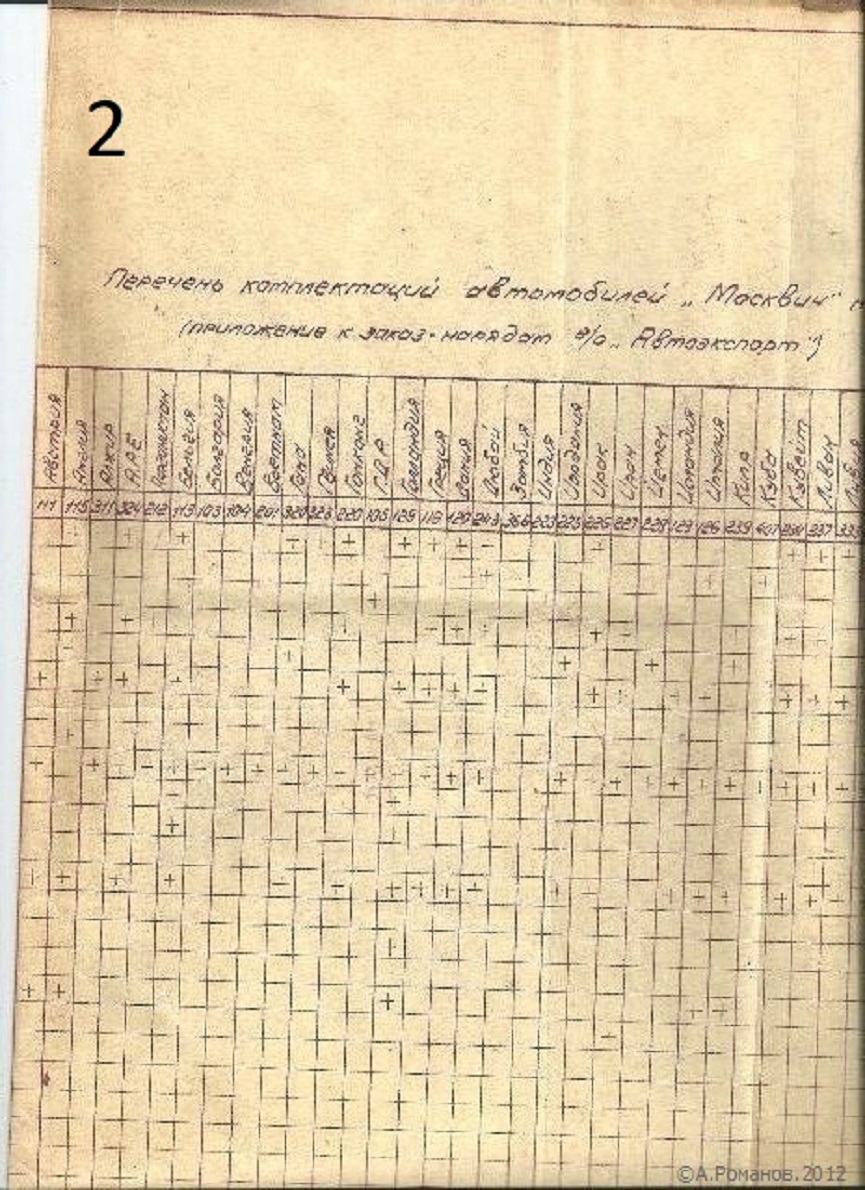 2
Перечень комплектаций автомобилей „Москвич"
(приложение к заказ-нарядам в/о „Автоэкспорт")
Австрия Англия Алжир АРЕ Афганистан Бельгия Болгария Венгрия Вьетнам Гана Гонконг ГДР Голландия Греция Дания Замбия Индия Иордания Ирак Иран Йемен Исландия Италия Кипр Куба Кувейт Ливан
111 115 311 324 212 113 103 104 201 320 323 220 105 129 118 120 243 366 223 225 226 227 229 123 126 239 407 237
©А.Романов.2012